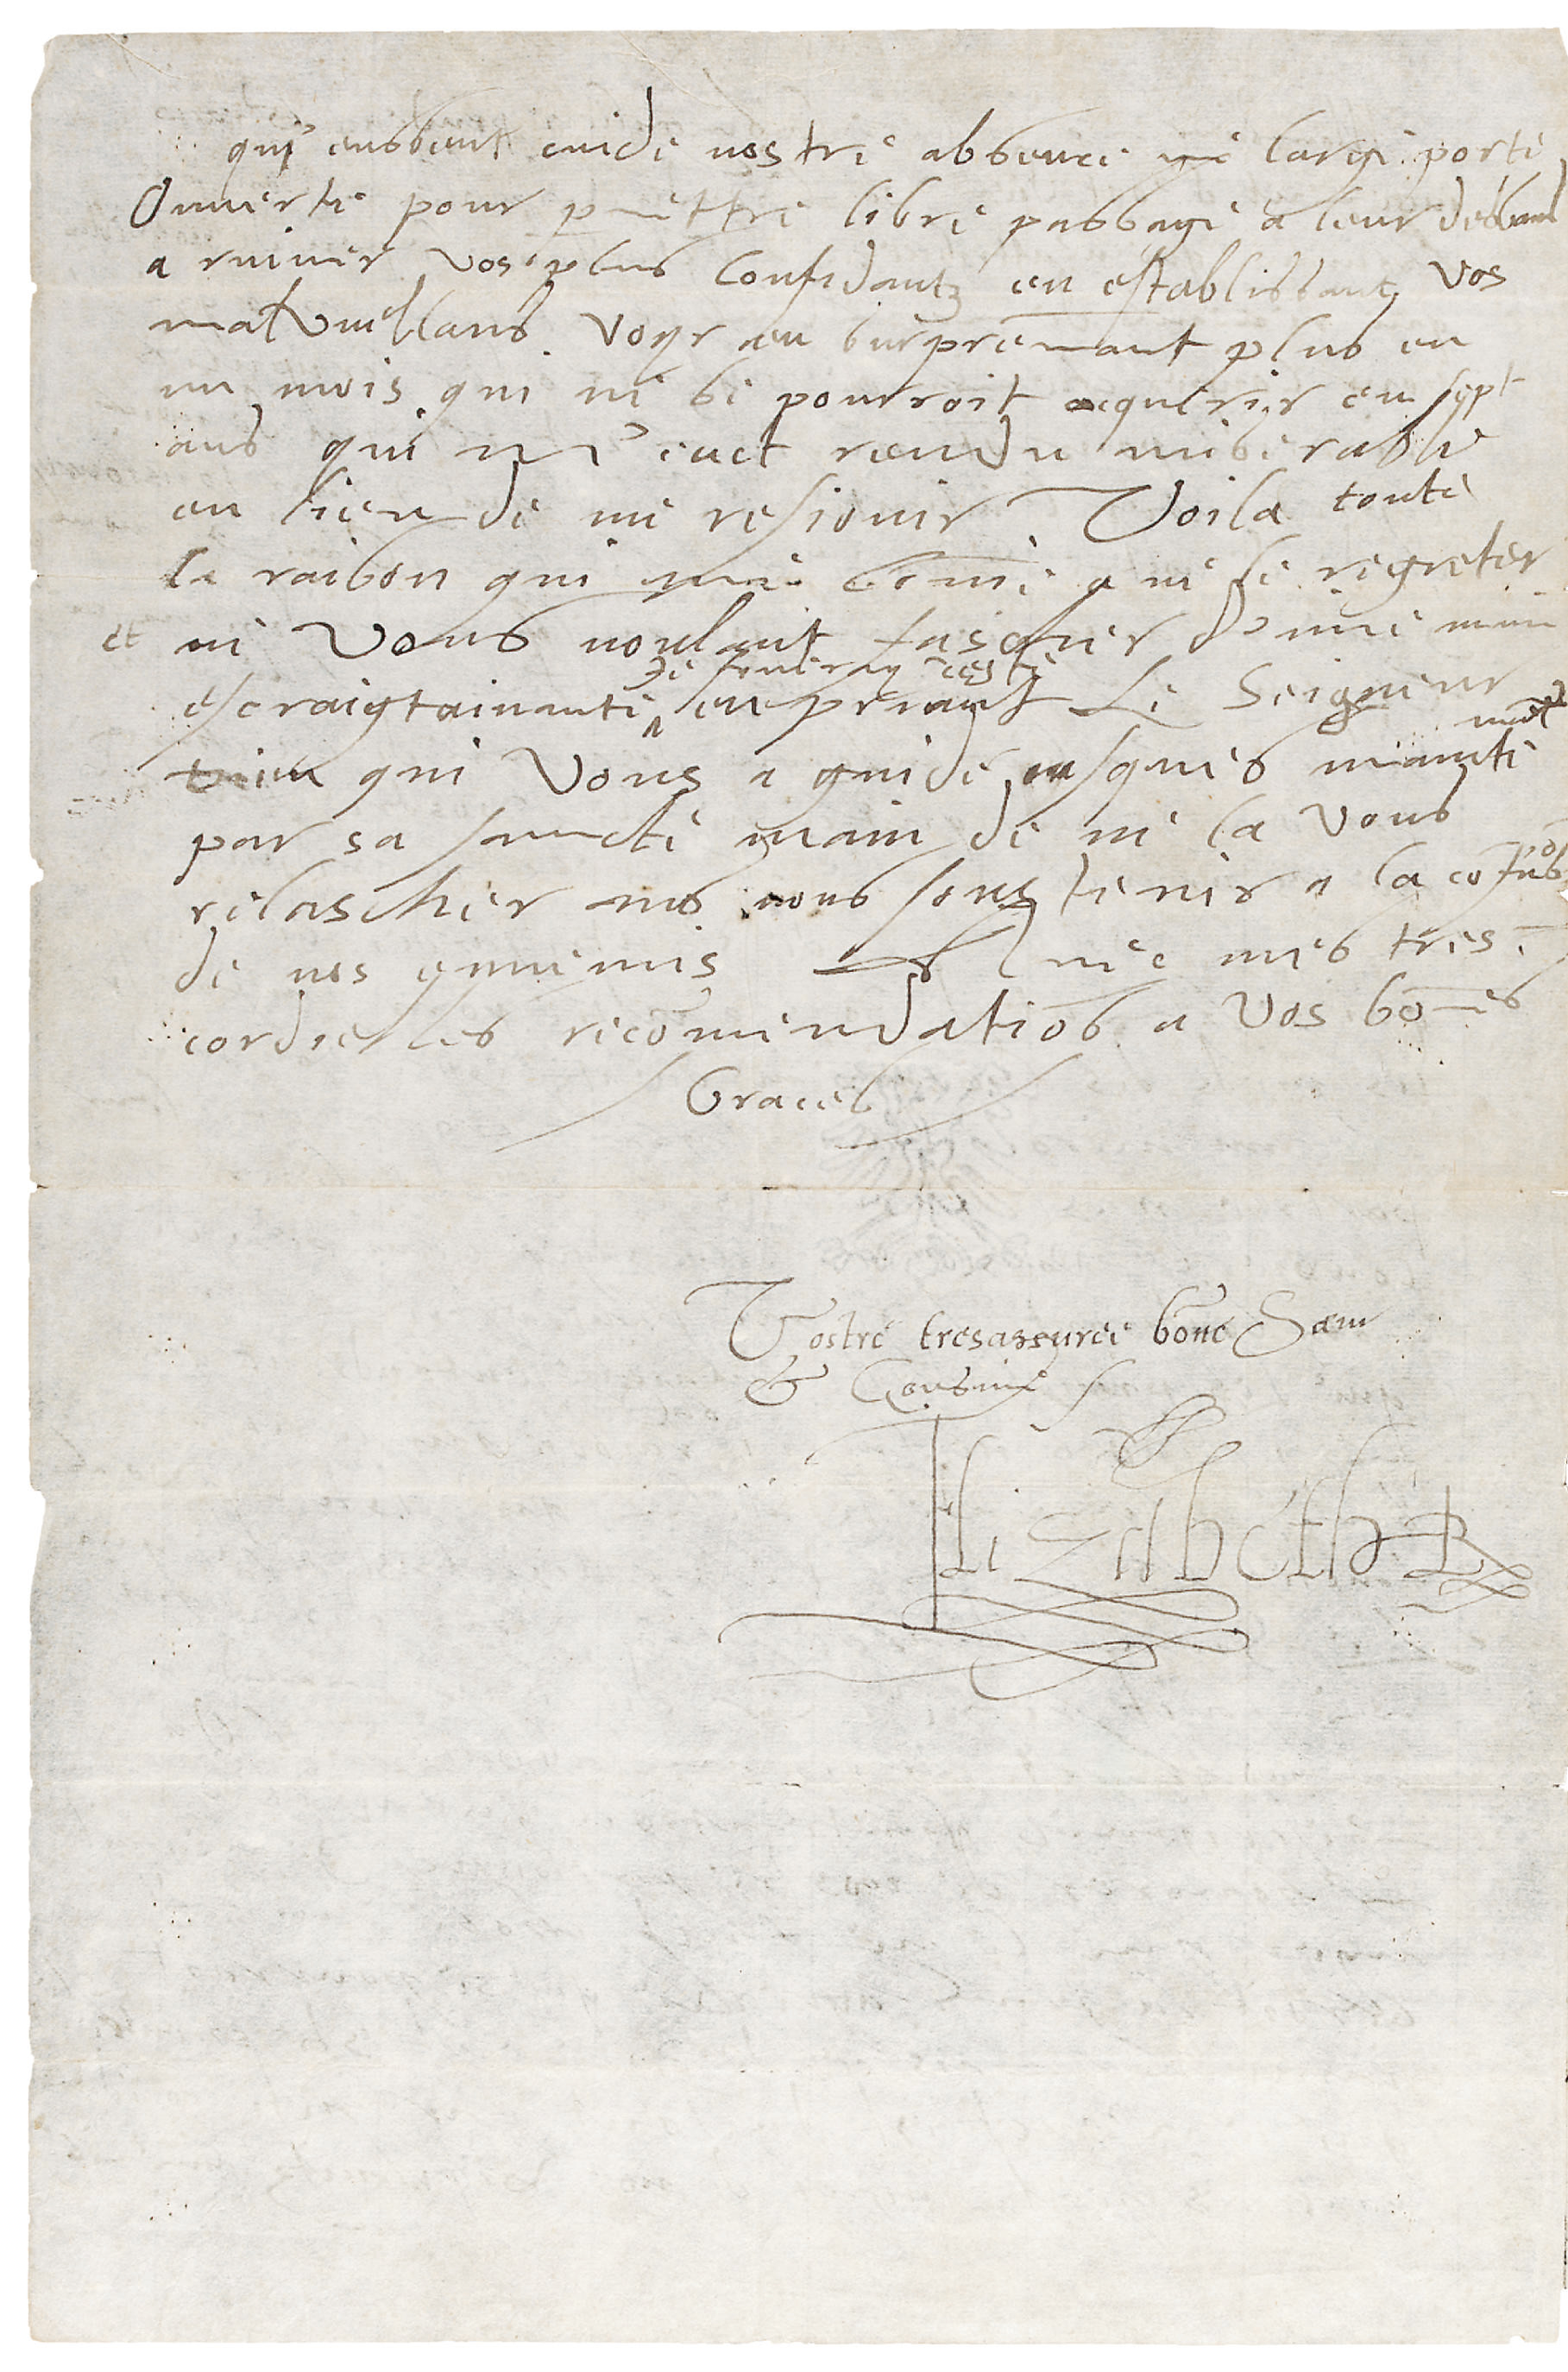 qui eussent cuidé nostre absence une large porte
Ouuerte pour permettre libre passage a leur
a ruiner vos plus Confidantz en establissant vos
malvuellans Voyr en surprenant plus en
un mois qui ne se pourroit aquerir en sept
ans qui m'euct rendu miserable
en lieu de me resiouir Voila toute
la raison qui me a ne le regreter
et ne Vous voulant fascher d'une
Je feneray ceste
en priant Le Seigneur
qui Vous a guidé iusques
par sa saincte main de ne la vous
relascher vous soustenir a la
de nos ennemis Auec mes tres
cordielles recōmendatiōs a Vos bōnes
Graces
Vostre tresassuree bōne Sœur
& Cousine
Elizabeth R